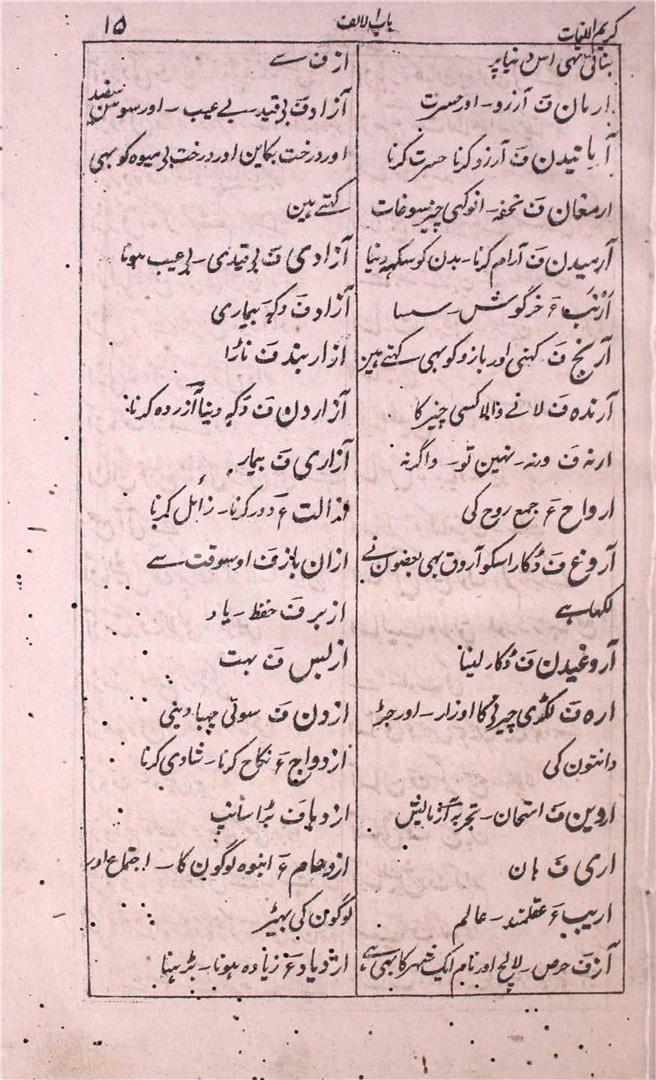 کریم اللغات
باب الالف
۱۵
بنائی تہی اس دنیا پر
ارمان ف آرزو۔ اور حسرت
آرمانیدن ف آرزو کرنا حسرت کرنا
ارمغان ف تحفہ۔ انوکہی چیز سوغات
آرمیدن ف آرام کرنا۔ بدن کو سکہہ دینا
اَرْنَب ع خرگوش۔ سسا
آرنج ف کہنی اور بازو کو بہی کہتے ہین
آرندہ ف لانے والا کسی چیز کا
ارنہ ف ورنہ۔ نہین تو۔ واگرنہ
ارواح ع جمع روح کی
آروغ ف ڈکار اسکو آروق بہی بعضون نے
لکہا ہے
آروغیدن ف ڈکار لینا
ارہ ف لکڑی چیرنے کا اوزار۔ اور جڑ
دانتون کی
اروین ف امتحان۔ تجربہ آزمایش
اری ف ہان
اریب ع عقلمند۔ عالم
آز ف حرص۔ لالچ اور نام ایک شہر کا بہی ہے
از ف سے
آزاد ف بیقید۔ بے عیب۔ اور سوسن سفید
اور درخت بکاین اور درخت بی میوہ کو بہی
کہتے ہین
آزادی ف بیقیدی۔ بی عیب ہونا
آزار ف دکہہ بیماری
ازاربند ف ناڑا
آزاردن ف دکہہ دینا آزردہ کرنا
آزاری ف بیمار
ازالت ع دور کرنا۔ زائل کرنا
ازان باز ف اوسوقت سے
ازبر ف حفظ۔ یاد
ازبس ف بہت
ازدن ف سوئی چبہا دینی
ازدواج ع نکاح کرنا۔ شادی کرنا
اژدہا ف بڑا سانپ
ازدحام ع انبوہ لوگون کا۔ اجتماع اور
لوگون کی بہیڑ
ازدیاد ع زیادہ ہونا۔ بڑہنا